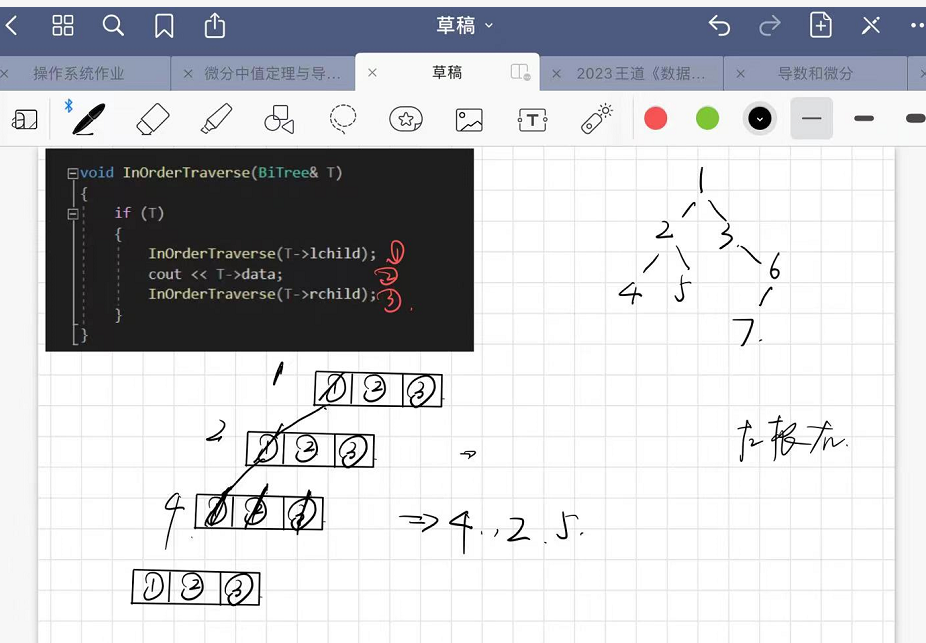 草稿
操作系统作业
微分中值定理与导...
草稿
2023王道《数据...
导数和微分
T
void InOrderTraverse(BiTree& T)
{
if (T)
{
InOrderTraverse(T->lchild); ①
cout << T->data; ②
InOrderTraverse(T->rchild); ③.
}
}
1
2 3
4 5 6
7.
1 ① ② ③
2 ① ② ③ ⇒
4 ① ② ③ ⇒ 4.,2.5.
① ② ③
左根右.